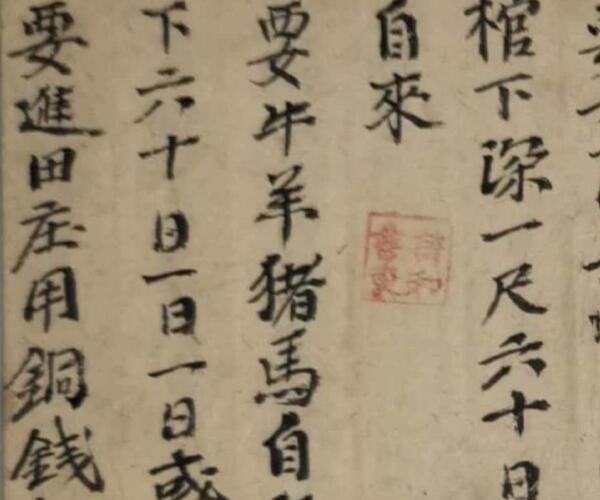 棺下深一尺六十日
自來
要牛羊猪馬自
下六十日一日一日或
要進田庄用銅錢